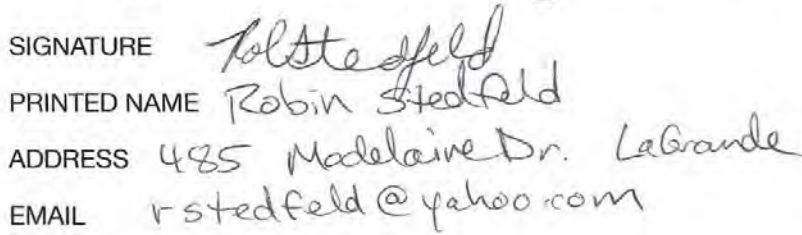 SIGNATURE Rolstedfeld
PRINTED NAME Robin Stedfeld
ADDRESS 485 Modelaire Dr. LaGrande
EMAIL rstedfeld@yahoo.com